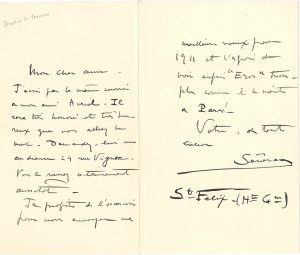 Mon cher ami.
J'écris par le même courrier
à mon ami Auriol. Il
sera très honoré et très heu-
reux que vous alliez le
voir. Demandez-lui une
audience 24 rue Vignon.
Vous a
aussitôt
Je profite de l'occasion
pour vous envoyer mes
meilleurs vœux pour
1911 et l'espoir de
voir enfin "Eros"
comme il le mérite
à Paris!
Votre, de tout
cœur
Séverac
St Felix - (Hte Gne)